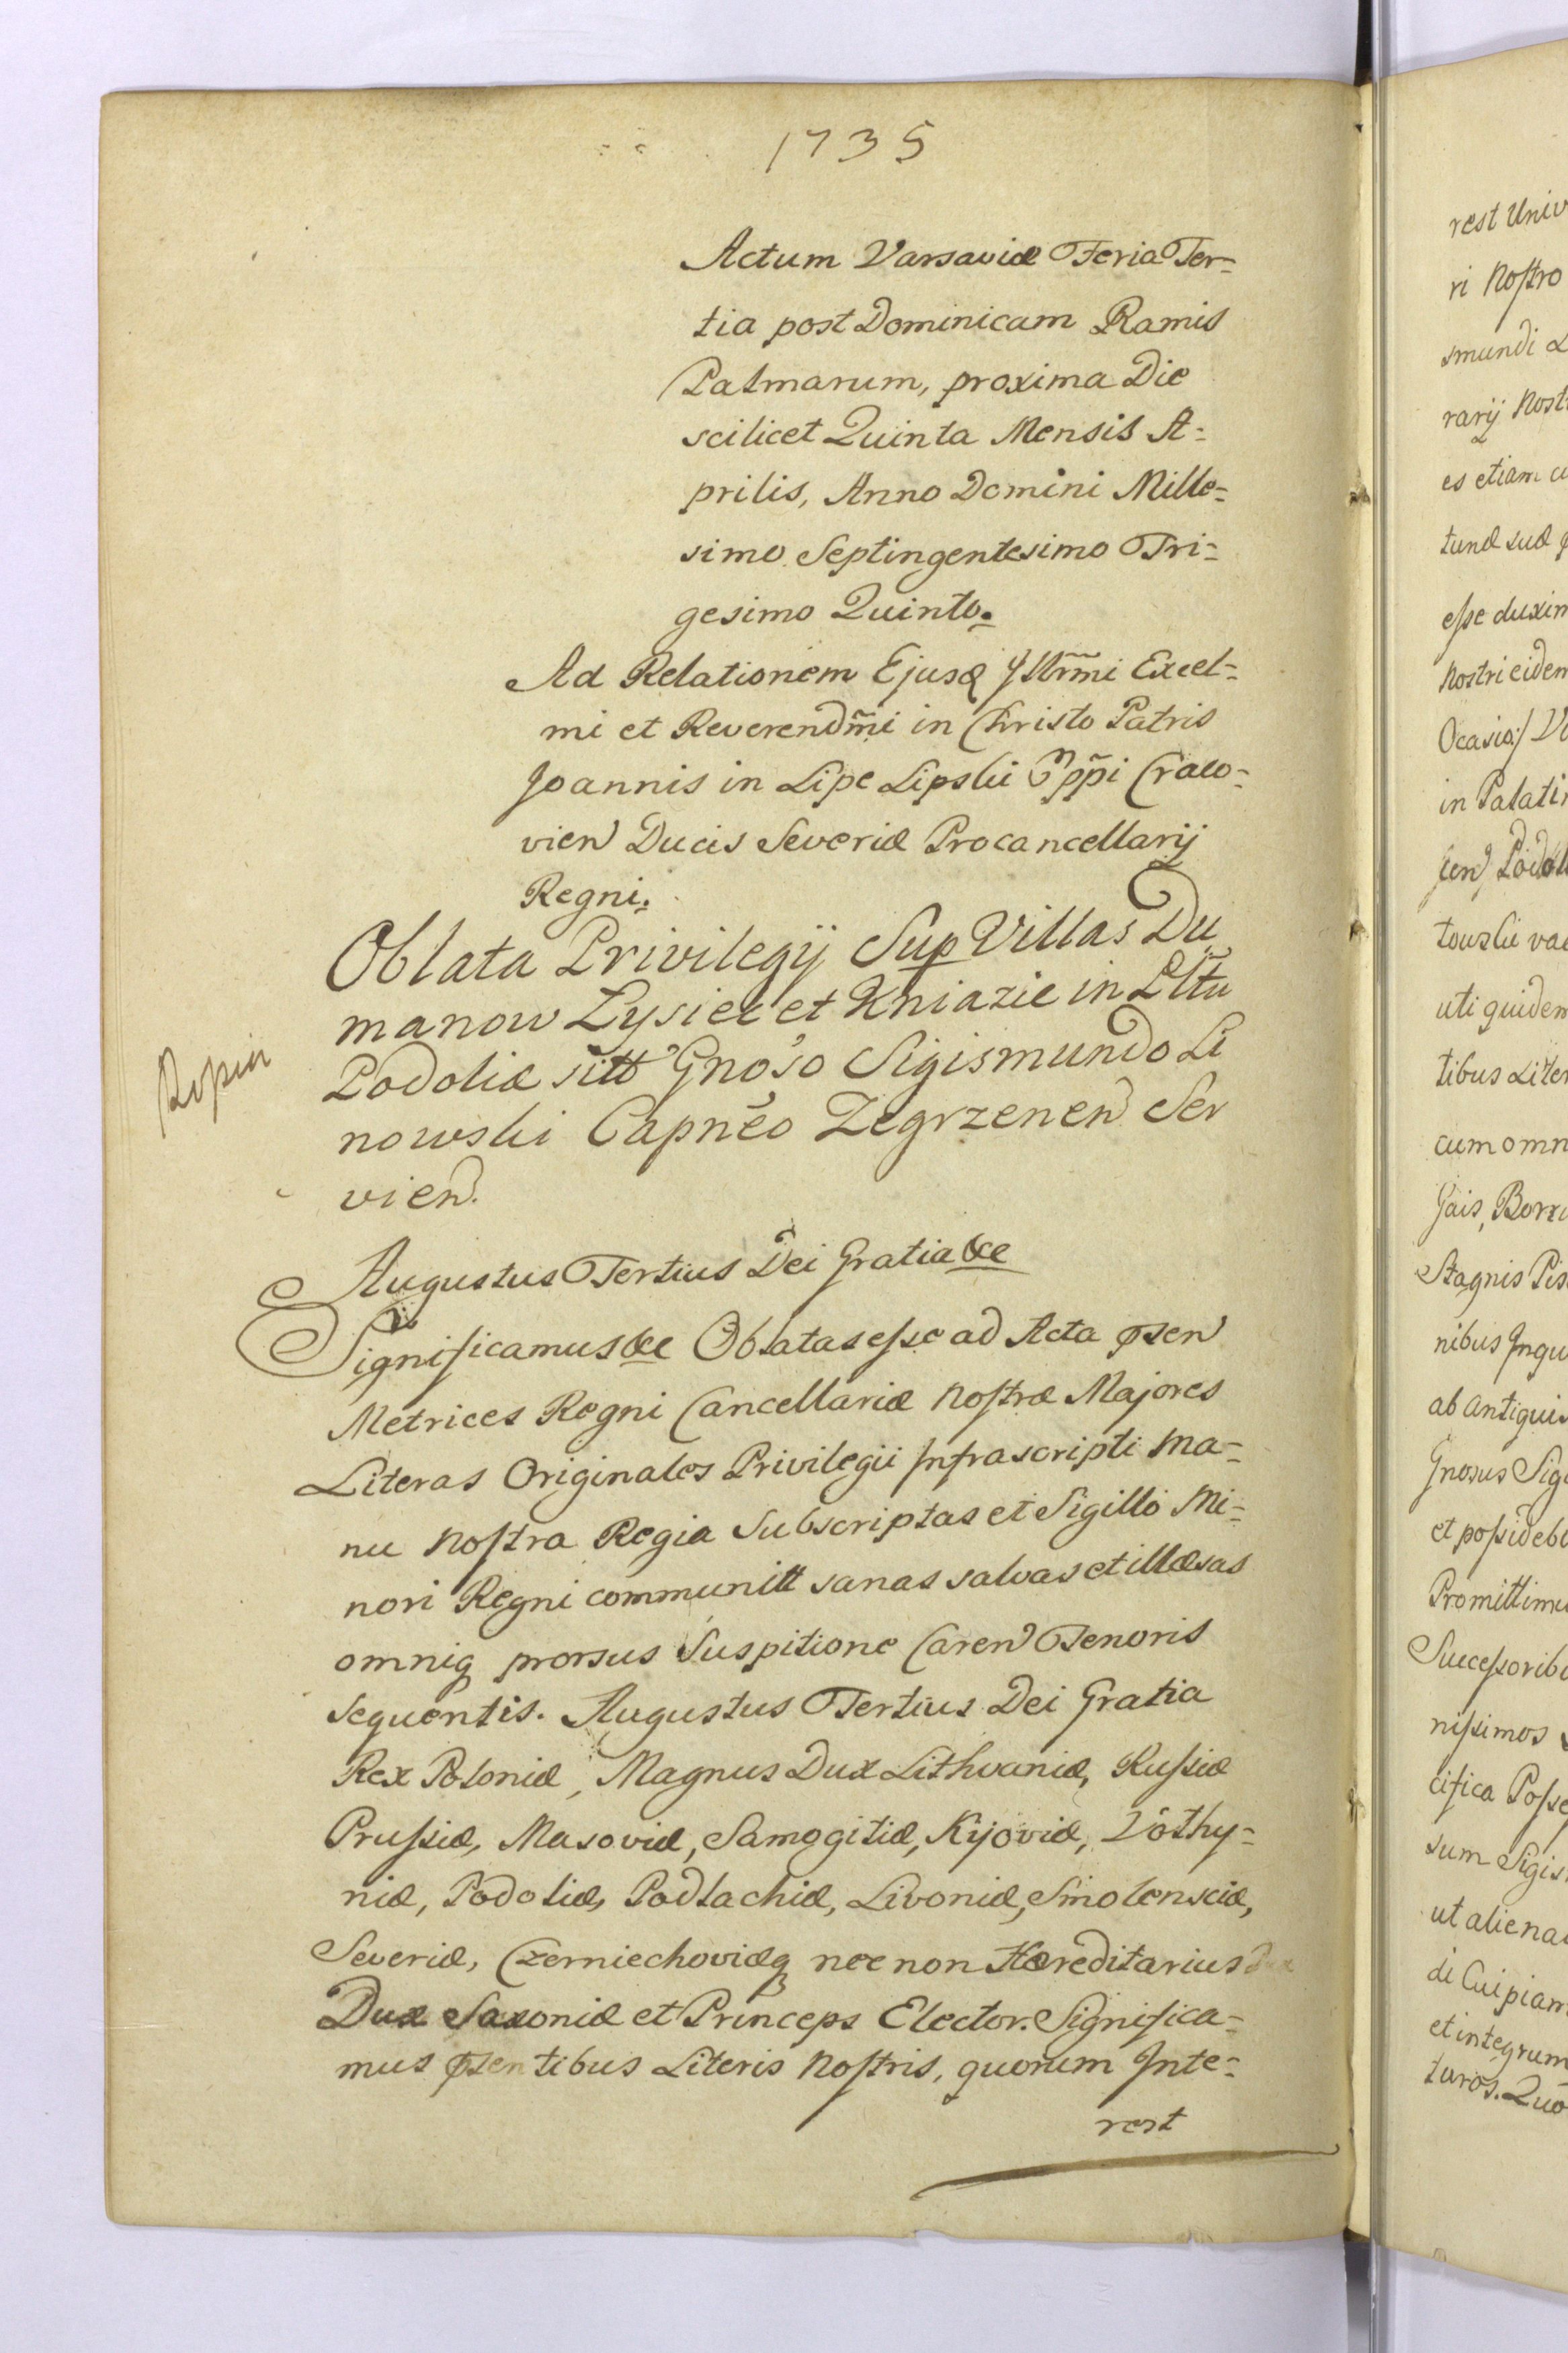 1735
Actum Varsaviæ Feria Ter=
tia post Dominicam Ramis
Palmarum, proxima Die
scilicet Quinta Mensis A=
prilis, Anno Domini Mille=
simo Septingentesimo Tri=
gesimo Quinto.
Ad Relationem Ejusq Illrm̃i Excel=
mi et Reverendm̃i in Christo Patris
Joannis in Lipe Lipski Epp̃i Craco=
vien Ducis Severiæ Procancellarij
Regni.
Oblata Privilegij Sup Villas Du
manow Lysiec et Kniazie in Pltũ
Podoliæ sitt Gnõso Sigismundo Li
nowski Capnẽo Zegrzenen Ser
vien.
Augustus Tertius Dei Gratia &c
Significamus &c Oblatas esse ad Acta pñsen
Metrices Regni Cancellariæ Nostræ Majores
Literas Originales Privilegii Infrascripti Ma=
nu Nostra Regia Subscriptas et Sigillo Mi=
nori Regni communitt sanas salvas et illæsas
omniq prorsus Suspitione Caren Tenoris
sequentis. Augustus Tertius Dei Gratia
Rex Poloniæ, Magnus Dux Lithvaniæ, Russiæ
Prussiæ, Masoviæ, Samogitiæ, Kijoviæ, Volhy=
niæ, Podoliæ, Podlachiæ, Livoniæ, Smolensciæ,
Severiæ, Czerniechoviæq nec non Hæreditarius
Dux Saxoniæ et Princeps Elector. Significa=
mus pñsentibus Literis Nostris, quorum Inte=
rest
rest Univ
ri Nostro
smundi L
rarij Nost
es etiam cu
tunæ suæ
esse duxim
Nostri eidem
Ocasio:/ Vi
in Palatin
sen, Podol
towski vac
uti quidem
tibus Liter
cum omn
Gais, Borri
Stagnis Pis
nibus Inqu
ab antiquis
Gnosus Sigi
et possidebi
Promittimu
Successoribu
nissimos
cifica Posse
sum Sigis
ut aliena
di Cuipiam
et integrum
turos. Quo